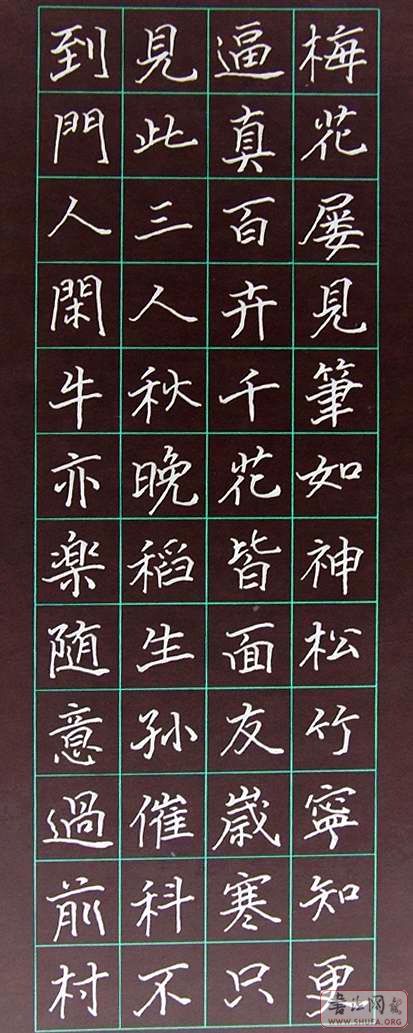 梅花屡見筆如神松竹寧知更
逼真百卉千花皆面友歲寒只
見此三人秋晚稻生孫催科不
到門人閑牛亦楽随意過前村
書法网
WWW.SHUFA.ORG